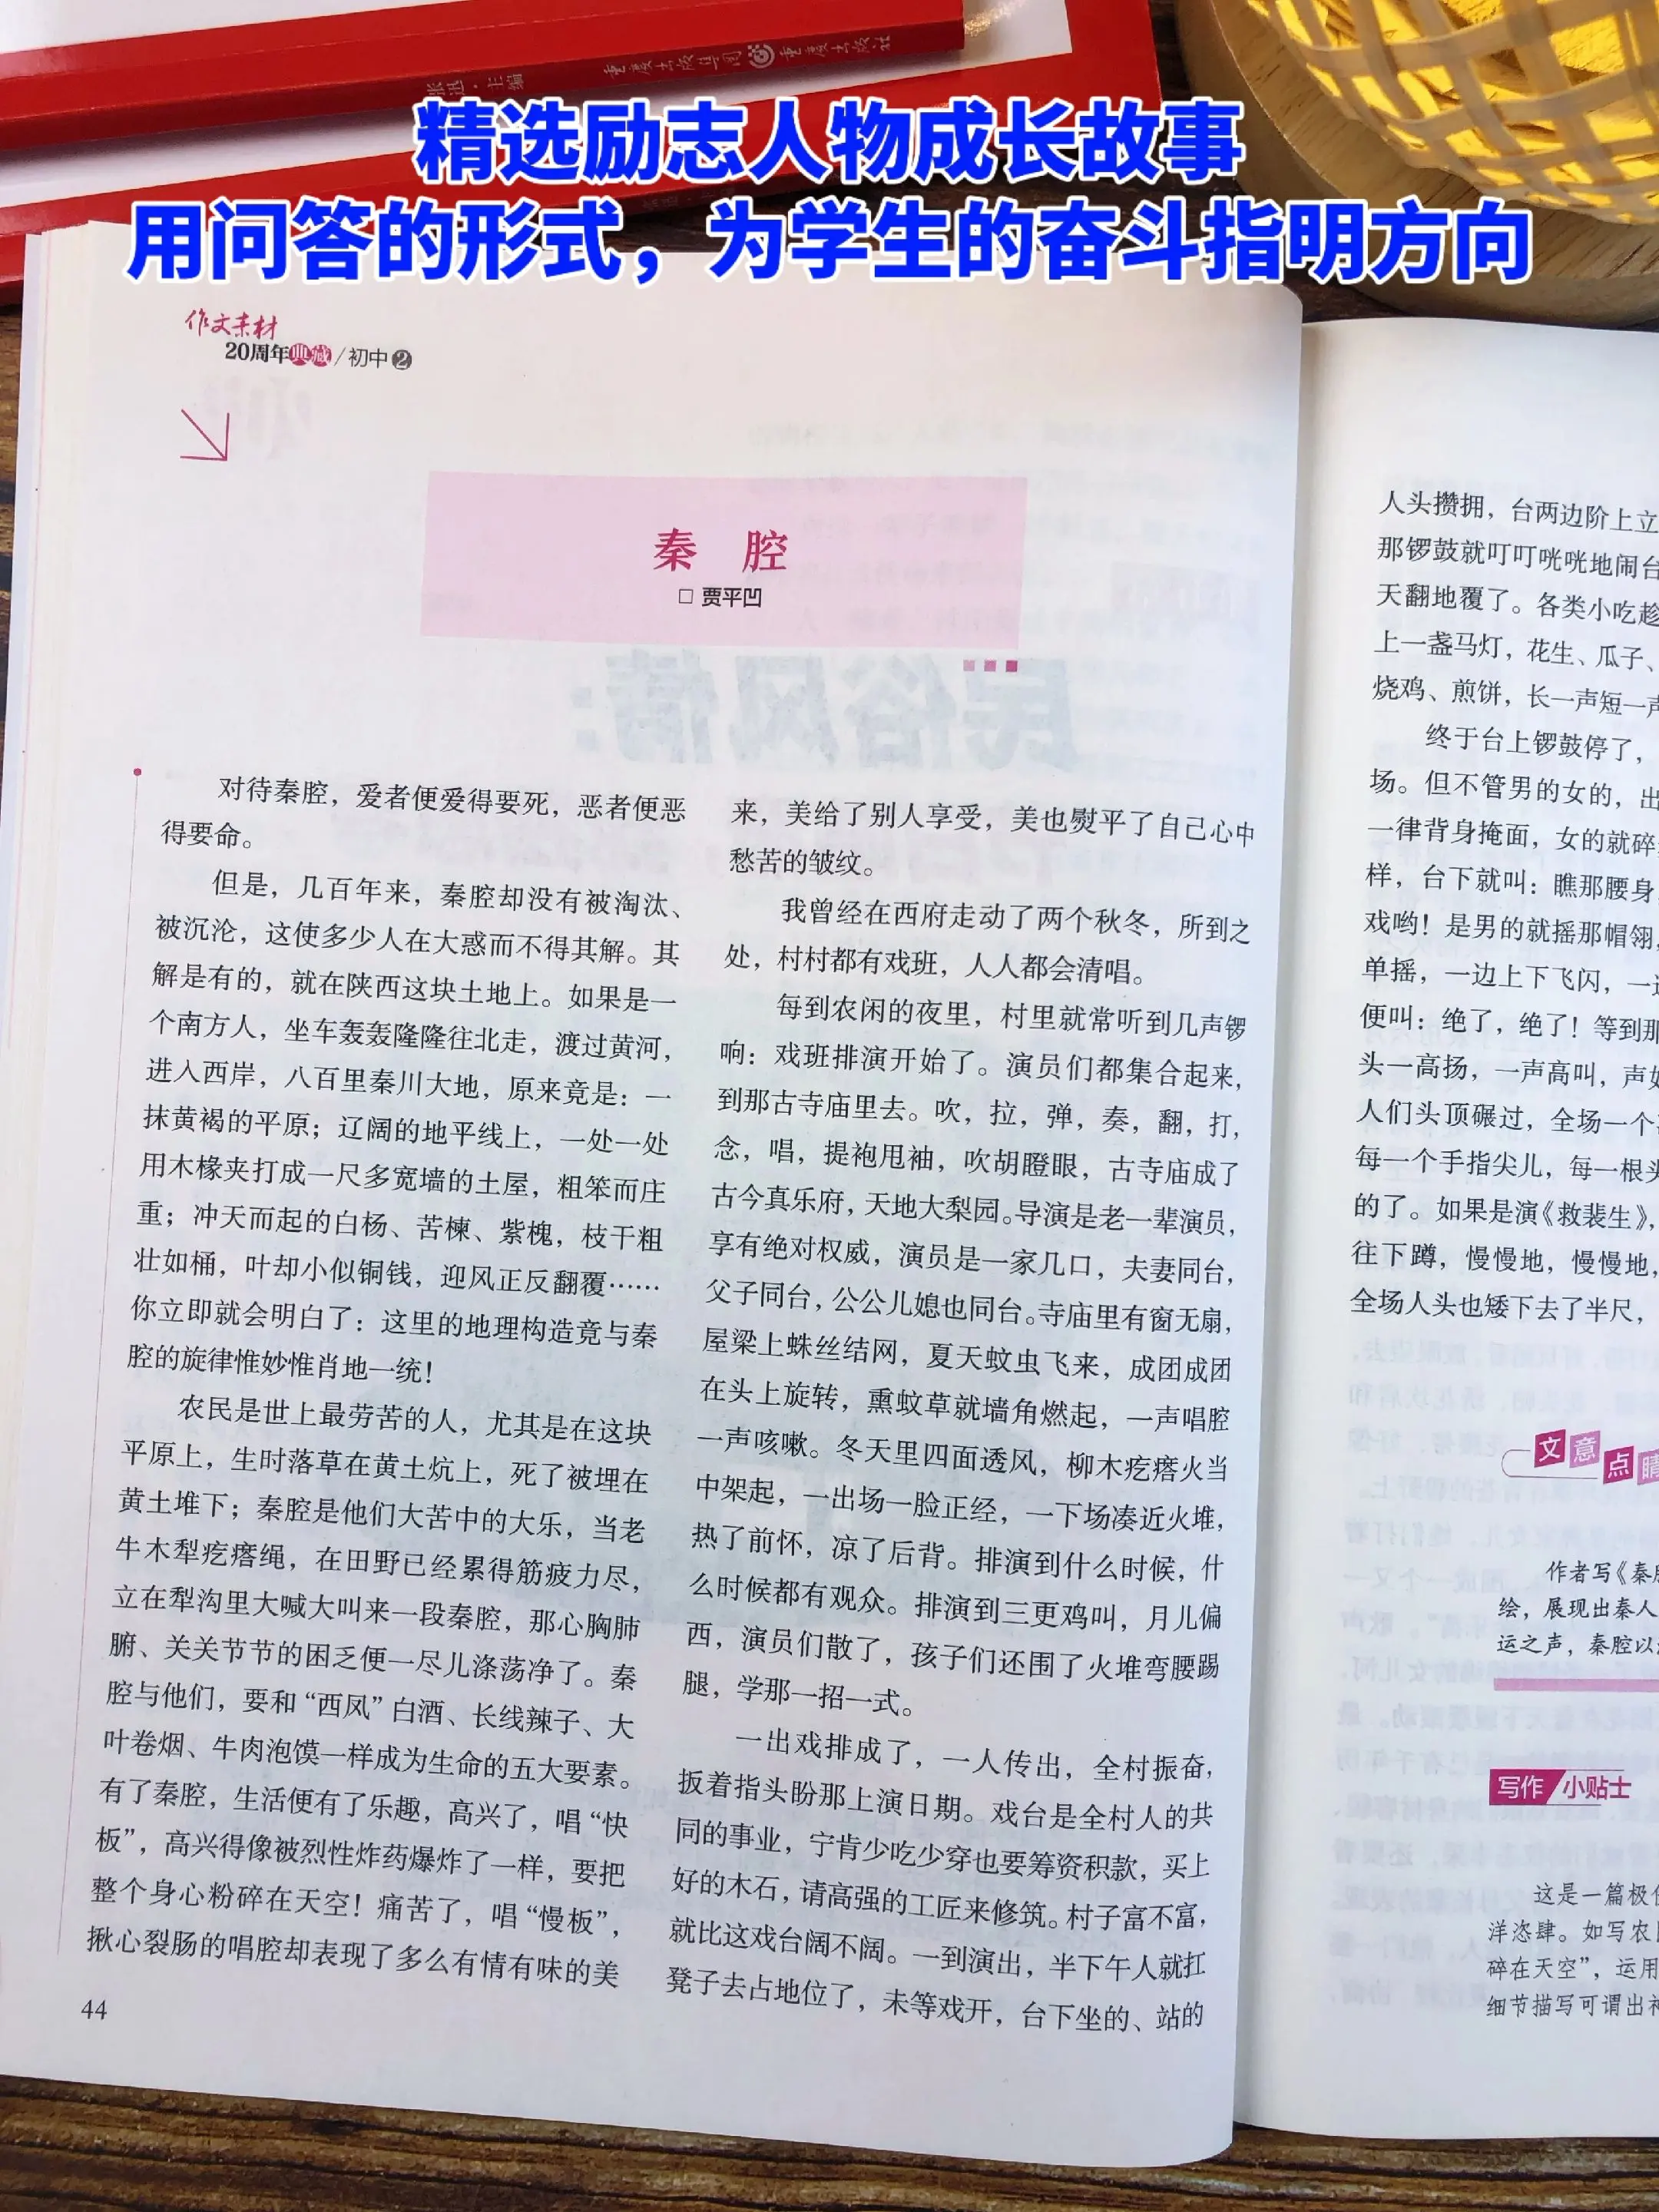 张迅·主编
重庆出版集团 重庆出版社
精选励志人物成长故事
用问答的形式，为学生的奋斗指明方向
作文素材
20周年典藏/初中2
秦 腔
□ 贾平凹
对待秦腔，爱者便爱得要死，恶者便恶
得要命。
但是，几百年来，秦腔却没有被淘汰、
被沉沦，这使多少人在大惑而不得其解。其
解是有的，就在陕西这块土地上。如果是一
个南方人，坐车轰轰隆隆往北走，渡过黄河，
进入西岸，八百里秦川大地，原来竟是：一
抹黄褐的平原；辽阔的地平线上，一处一处
用木椽夹打成一尺多宽墙的土屋，粗笨而庄
重；冲天而起的白杨、苦楝、紫槐，枝干粗
壮如桶，叶却小似铜钱，迎风正反翻覆……
你立即就会明白了：这里的地理构造竟与秦
腔的旋律惟妙惟肖地一统！
农民是世上最劳苦的人，尤其是在这块
平原上，生时落草在黄土炕上，死了被埋在
黄土堆下；秦腔是他们大苦中的大乐，当老
牛木犁疙瘩绳，在田野已经累得筋疲力尽，
立在犁沟里大喊大叫来一段秦腔，那心胸肺
腑、关关节节的困乏便一尽儿涤荡净了。秦
腔与他们，要和“西凤”白酒、长线辣子、大
叶卷烟、牛肉泡馍一样成为生命的五大要素。
有了秦腔，生活便有了乐趣，高兴了，唱“快
板”，高兴得像被烈性炸药爆炸了一样，要把
整个身心粉碎在天空！痛苦了，唱“慢板”，
揪心裂肠的唱腔却表现了多么有情有味的美
44
来，美给了别人享受，美也熨平了自己心中
愁苦的皱纹。
我曾经在西府走动了两个秋冬，所到之
处，村村都有戏班，人人都会清唱。
每到农闲的夜里，村里就常听到几声锣
响：戏班排演开始了。演员们都集合起来，
到那古寺庙里去。吹，拉，弹，奏，翻，打，
念，唱，提袍甩袖，吹胡瞪眼，古寺庙成了
古今真乐府，天地大梨园。导演是老一辈演员，
享有绝对权威，演员是一家几口，夫妻同台，
父子同台，公公儿媳也同台。寺庙里有窗无扇，
屋梁上蛛丝结网，夏天蚊虫飞来，成团成团
在头上旋转，熏蚊草就墙角燃起，一声唱腔
一声咳嗽。冬天里四面透风，柳木疙瘩火当
中架起，一出场一脸正经，一下场凑近火堆，
热了前怀，凉了后背。排演到什么时候，什
么时候都有观众。排演到三更鸡叫，月儿偏
西，演员们散了，孩子们还围了火堆弯腰踢
腿，学那一招一式。
一出戏排成了，一人传出，全村振奋，
扳着指头盼那上演日期。戏台是全村人的共
同的事业，宁肯少吃少穿也要筹资积款，买上
好的木石，请高强的工匠来修筑。村子富不富，
就比这戏台阔不阔。一到演出，半下午人就扛
凳子去占地位了，未等戏开，台下坐的、站的
人头攒拥，台两边阶上立
那锣鼓就叮叮咣咣地闹台
天翻地覆了。各类小吃趁
上一盏马灯，花生、瓜子、
烧鸡、煎饼，长一声短一声
终于台上锣鼓停了，
场。但不管男的女的，出
一律背身掩面，女的就碎
样，台下就叫：瞧那腰身，
戏哟！是男的就摇那帽翎，
单摇，一边上下飞闪，一边
便叫：绝了，绝了！等到那
头一高扬，一声高叫，声如
人们头顶碾过，全场一个
每一个手指尖儿，每一根头
的了。如果是演《救裴生》，
往下蹲，慢慢地，慢慢地，
全场人头也矮下去了半尺，
文意点睛
作者写《秦腔
绘，展现出秦人
运之声，秦腔以
写作 小贴士
这是一篇极
洋恣肆。如写农
碎在天空”，运用
细节描写可谓出神